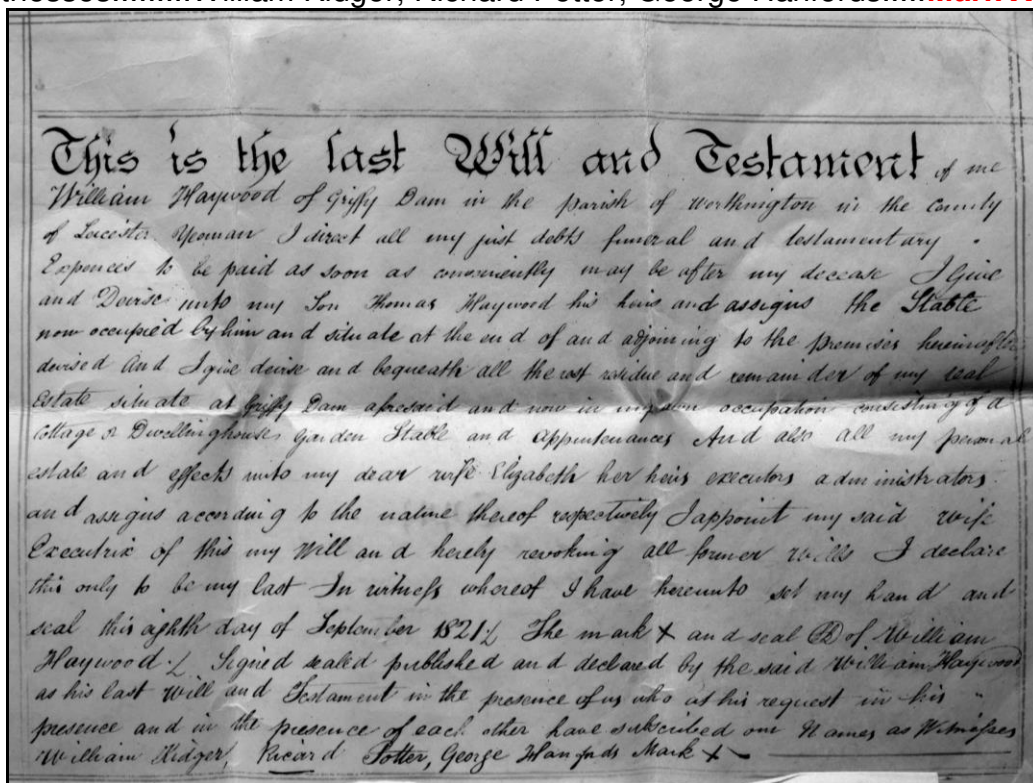 William Kidger, Richard Potter, George
This is the last Will and Testament of me
William Haywood of Griffy Dam in the parish of Worthington in the County
of Leicester Yeoman I direct all my just debts funeral and testamentary
Expences to be paid as soon as conveniently may be after my decease I Give
and Devise unto my Son Thomas Haywood his heirs and assigns the Stable
now occupied by him and situate at the end of and adjoining to the premises hereinafter
devised And I give devise and bequeath all the rest residue and remainder of my real
Estate situate at Griffy Dam aforesaid and now in my own occupation consisting of a
Cottage or Dwellinghouse, Garden Stable and Appurtenances And also all my personal
estate and effects unto my dear wife Elizabeth her heirs executors administrators
and assigns according to the nature thereof respectively I appoint my said wife
Executrix of this my Will and hereby revoking all former Wills I declare
this only to be my last In witness whereof I have hereunto set my hand and
seal this eighth day of September 1821 The mark X and seal of William
Haywood Signed sealed published and declared by the said William Haywood
as his last Will and Testament in the presence of us who at his request in his
presence and in the presence of each other have subscribed our Names as Witnesses
William Kidger, Ricard Potter, George Mark X